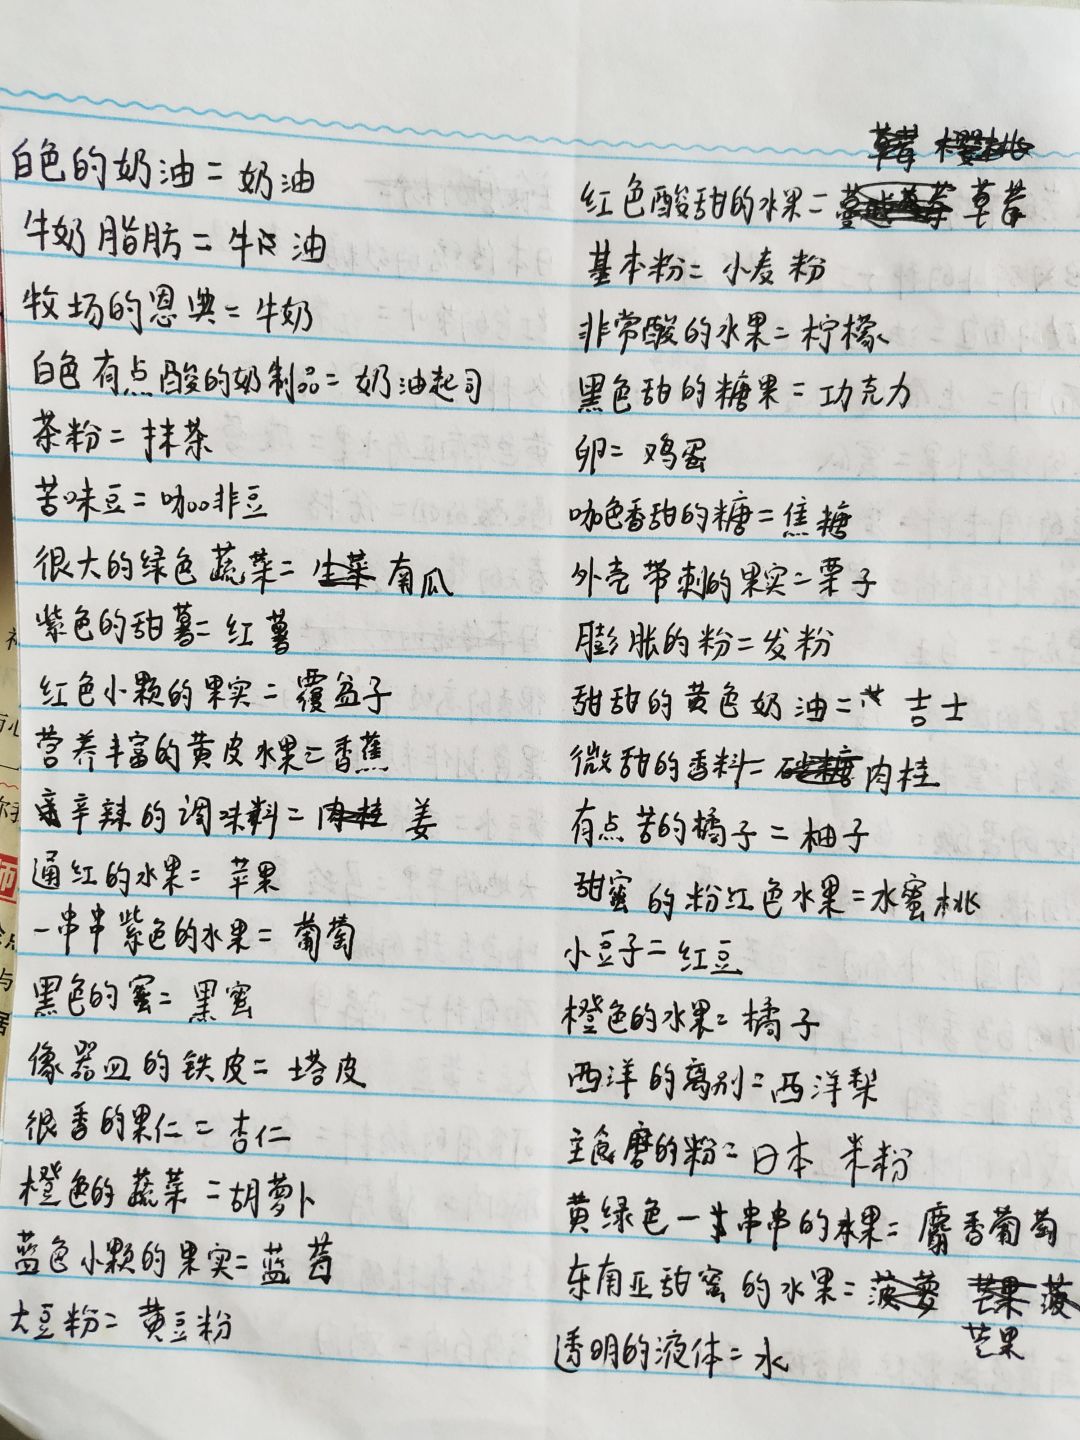 白色的奶油=奶油
牛奶脂肪=牛油
牧场的恩典=牛奶
白色有点酸的奶制品=奶油起司
茶粉=抹茶
苦味豆=咖啡豆
很大的绿色蔬菜=生菜 南瓜
紫色的甜薯=红薯
红色小颗的果实=覆盆子
营养丰富的黄皮水果=香蕉
辛辣的调味料=肉桂 姜
通红的水果=苹果
一串串紫色的水果=葡萄
黑色的蜜=黑蜜
像器皿的铁皮=塔皮
很香的果仁=杏仁
橙色的蔬菜=胡萝卜
蓝色小颗的果实=蓝莓
大豆粉=黄豆粉
草莓 樱桃
红色酸甜的水果=蔓越莓 草莓
基本粉=小麦粉
非常酸的水果=柠檬
黑色甜的糖果=巧克力
卵=鸡蛋
咖色香甜的糖=焦糖
外壳带刺的果实=栗子
膨胀的粉=发粉
甜甜的黄色奶油=吉士
微甜的香料=砂糖 肉桂
有点苦的橘子=柚子
甜蜜的粉红色水果=水蜜桃
小豆子=红豆
橙色的水果=橘子
西洋的离别=西洋梨
主食磨的粉=日本 米粉
黄绿色一串串的水果=麝香葡萄
东南亚甜蜜的水果=菠萝 芒果 菠
芒果
透明的液体=水